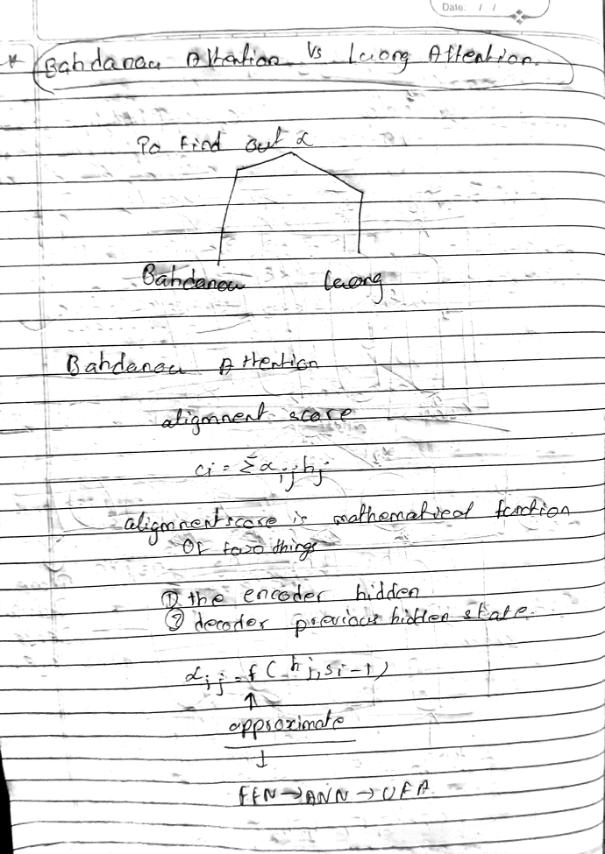 Date: / /
* Bahdanau Attention Vs Luong Attention.
To Find out α
Bahdanau Luong
Bahdanau Attention
alignment score
ci = Σαijhj
alignment score is mathematical function
Of two things
① the encoder hidden
② decoder previous hidden state.
αij = f(hj,si-1)
↑
approximate
↓
FFN→ANN→UFA